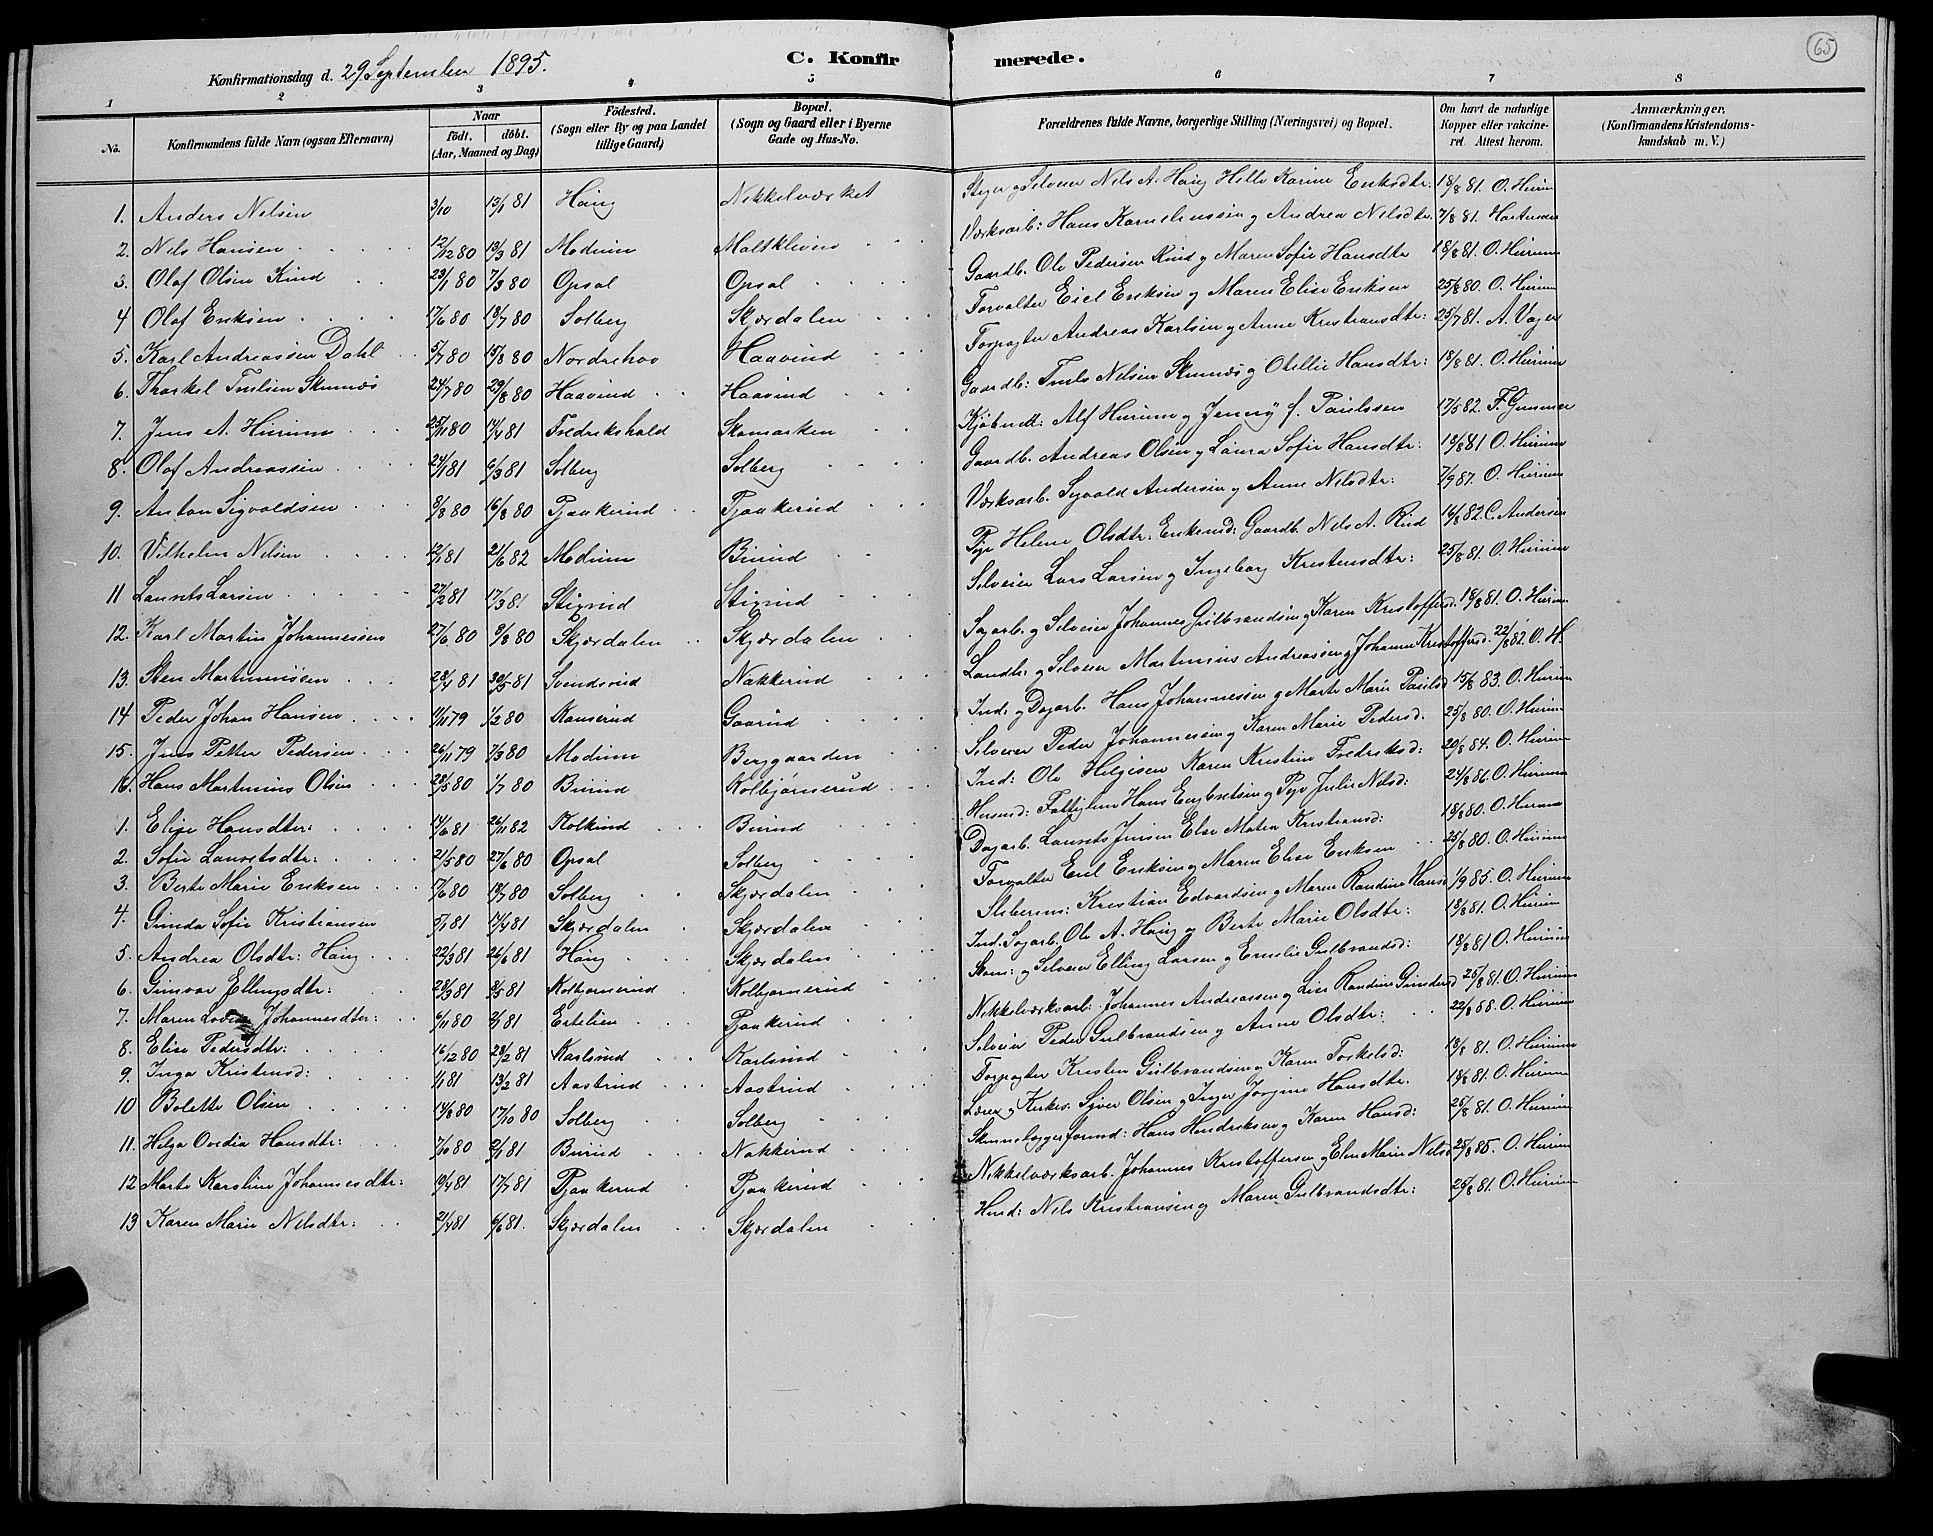 65
Konfirmationsdag d. 29 September 1895.
C. Konfirmerede.
1 2 3 4 5 6 7 8
No. Konfirmandens fulde Navn (ogsaa Efternavn) Naar födt. döbt. (Aar, Maaned og Dag) Födested. (Sogn eller By og paa Landet tillige Gaard) Bopæl. (Sogn og Gaard eller i Byerne Gade og Hus-No. Forældrenes fulde Navne, borgerlige Stilling (Næringsvei) og Bopæl. Om havt de naturlige Kopper eller vakcineret. Attest herom. Anmærkninger. (Konfirmandens Kristendomskundskab m. V.)
1. Anders Nilsen 3/10 13/1 81 Haug Nikkelværket Steiger og Selveier Nils A. Haug Helle Karine Eriksdtr. 18/8 81. O. Hurum
2. Nils Hansen 12/12 80 13/3 81 Modum Maltkleven Værksarb: Hans Korneliussen og Andrea Nilsdtr. 7/8 81.
3. Olaf Olsen Rud 23/1 80 7/3 80 Opsal Opsal Gaardb. Ole Pedersen Rud og Maren Sofie Hansdtr 18/8 81. O. Hurum
4 Olaf Eriksen 17/6 80 18/7 80 Solberg Skjærdalen Forvalter Eiel Eriksen og Maren Elise Eriksen 25/8 80. O. Hurum
5. Karl Andreassen Dahl 5/7 80 15/8 80 Nordrehov Haavind Forpagter Andreas Karlsen og Anne Kristiansdtr: 25/7 81. A.
6. Thorkel Truelsen Skinnæs 24/7 80 29/8 80 Haavind Haavind Gaardb: Truls Nilsen Skinnæs og Otellie Hansdtr: 18/8 81. O. Hurum
7. Jens A. Hurum 25/11 80 17/4 81 Fredrikshald Skomarken Kjøbmdt: Alf Hurum og Jenny f. Paulssen 17/5 82. F.
8. Olaf Andreassen 24/1 81 6/3 81 Solberg Solberg Gaardb. Andreas Olsen og Laura Sofie Hansdtr: 18/8 81 O. Hurum
9. Anton Sigvaldsen 8/8 80 16/8 80 Pjaakerud Pjaakerud Værksarb. Sigvald Andersen og Anne Nilsdtr: 7/9 87. O. Hurum
10. Vilhelm Nilsen 12/1 81 21/6 82 Modum Burud Pige Helene Olsdtr: Enkemd: Gaardb. Nils A. Rud 16/8 82 C. Andersen
11 Laurits Larsen 27/2 81 17/3 81 Stixrud Stixrud Selveier Lars Larsen og Ingeborg Kristensdtr: 25/8 81. O. Hurum
12. Karl Martin Johannessen 27/6 80 8/8 80 Skjærdalen Skjærdalen Sagarb. og Selveier Johannes Gulbrandsen og Karen Kristoffersd. 18/8 81. O. Hurum
13. Sten Martiniussen 28/4 81 30/5 81 Svendsrud Nakkerud Landh: og Selveier Martinius Andreassen og Johanne Kristoffersd. 22/8 82. O. H.
14 Peder Johan Hansen 11/11 79 1/2 80 Ramserud Gaarud Ind: og Dagarb. Hans Johannessen og Marte Marie Paulsd 15/8 83. O. Hurum
15. Jens Petter Pedersen 26/11 79 7/3 80 Modum Berggaarden Selveier Peder Johannessen og Karen Marie Pedersd. 25/8 80. O. Hurum
16. Hans Martinius Olsen 28/5 80 1/7 80 Burud Kolbjørnsrud Ind: Ole Helgesen Karen Kristine Fredriksd: 20/8 84. O. Hurum
1. Elise Hansdtr: 14/6 81 26/11 82 Kolkind Burud Husmd: Fattiglem Hans Engbretsen og Pige Julie Nilsd: 24/8 86. O. Hurum
2. Sofie Lauritsdtr: 21/5 80 27/6 80 Opsal Solberg Dagarb. Laurits Jensen Else Matea Kristiansd: 18/8 80. O. Hurum
3. Berte Marie Eriksen 17/6 80 18/7 80 Solberg Skjærdalen Forvalter Eiel Eriksen og Maren Elise Eriksen 25/8 80. O. Hurum
4. Gunda Sofie Kristiansen 5/1 81 17/4 81 Skjærdalen Skjærdalen Kristian Edvardsen og Maren Randine Hansd 1/9 85. O. Hurum
5. Andrea Olsdtr: Haug 22/3 81 26/6 81 Haug Skjærdalen Ind. Sagarb. Ole A. Haug og Berte Marie Olsdtr: 18/8 81. O. Hurum
6. Gunvor Ellingsdtr: 28/3 81 8/5 81 Kolbjørnsrud Kolbjørnsrud Skom: og Selveier Elling Larsen og Emilie Gulbrandsd: 18/8 81 O. Hurum
7. Maren Lovise Johannesdtr: 6/11 80 2/1 81 Ertelien Pjaakerud Nikkelværksarb: Johannes Andreassen og Lise Randine Gundersd 25/8 81. O. Hurum
8. Elise Pedersdtr: 16/12 80 28/2 81 Karlsrud Karlsrud Selveier Peder Gulbrandsen og Anne Olsdtr: 22/8 88. O. Hurum
9. Inga Kristensd: 1/1 81 13/2 81 Aastrud Aastrud Forpagter Kristen Gulbrandsen og Karen Torkelsd: 18/8 81. O. Hurum
10 Bolette Olsen 14/8 80 17/10 80 Solberg Solberg Lærer og Kirkes. Syver Olsen og Inger Jørgine Hansdtr. 18/8 81. O. Hurum
11. Helga Ovedia Hansdtr: 7/10 80 2/1 81 Burud Nakkerud Skinnelæggerformd: Hans Hendriksen og Karen Hansd: 25/8 81. O. Hurum
12 Marte Karoline Johannesdtr: 19/4 81 17/7 81 Pjaakerud Pjaakerud Nikkelværksarb. Johannes Kristoffersen og Elen Marie Nilsd 25/8 85. O. Hurum
13 Karen Marie Nilsdtr: 21/4 81 6/6 81. Skjærdalen Skjærdalen Hmd: Nils Kristiansen og Maren Gulbrandsdtr: 25/8 81. O. Hurum